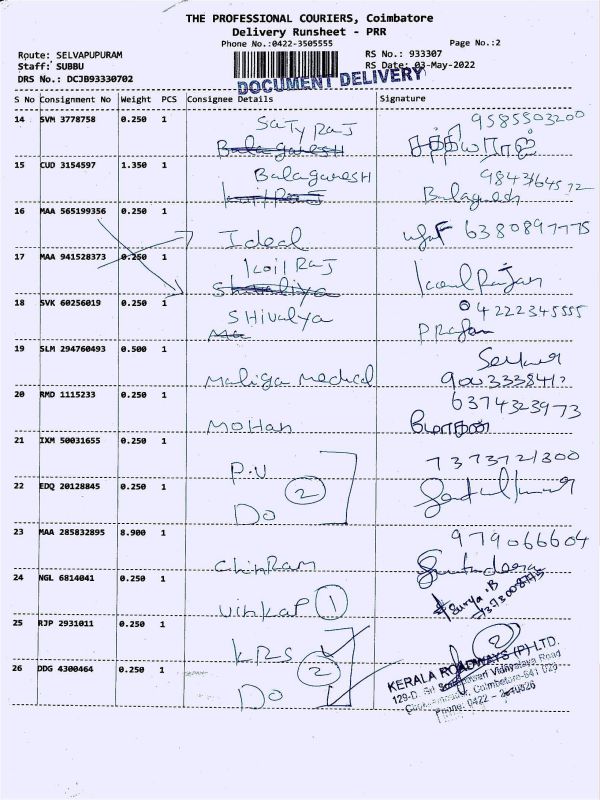 THE PROFESSIONAL COURIERS, Coimbatore
Delivery Runsheet - PRR
Phone No.:0422-3505555
Page No.:2
Route: SELVAPUPURAM
RS No.: 933307
Staff: SUBBU
RS Date: 03-May-2022
DRS No.: DCJB93330702
DOCUMENT DELIVERY
S No Consignment No Weight PCS Consignee Details Signature
14 SVM 3778758 0.250 1 SATYRAJ 9585503200
Bala ganesh
15 CUD 3154597 1.350 1 Balaganesh
KoilRaJ Balaganesh
16 MAA 565199356 0.250 1 Ideal 6380897775
17 MAA 941528373 0.250 1 KoilRaJ
Shivaliya
18 SVK 60256019 0.250 1 SHivalya 04222345555
Ma
19 SLM 294760493 0.500 1 Maliga medical
20 RMD 1115233 0.250 1 Mohan 6374323973
மோகன்
21 IXM 50031655 0.250 1 P.U 7373721300
22 EDQ 20128845 0.250 1 Do 2
23 MAA 285832895 8.900 1 ChinRam 979066604
24 NGL 6814041 0.250 1 1
Surya.B
25 RJP 2931011 0.250 1 KRS 2
26 DDG 4300464 0.250 1 Do 2
KERALA ROADWAYS (P) LTD.
129-D, Sri Vidhyalaya Road
Coimbatore-641
Phone: 0422 -